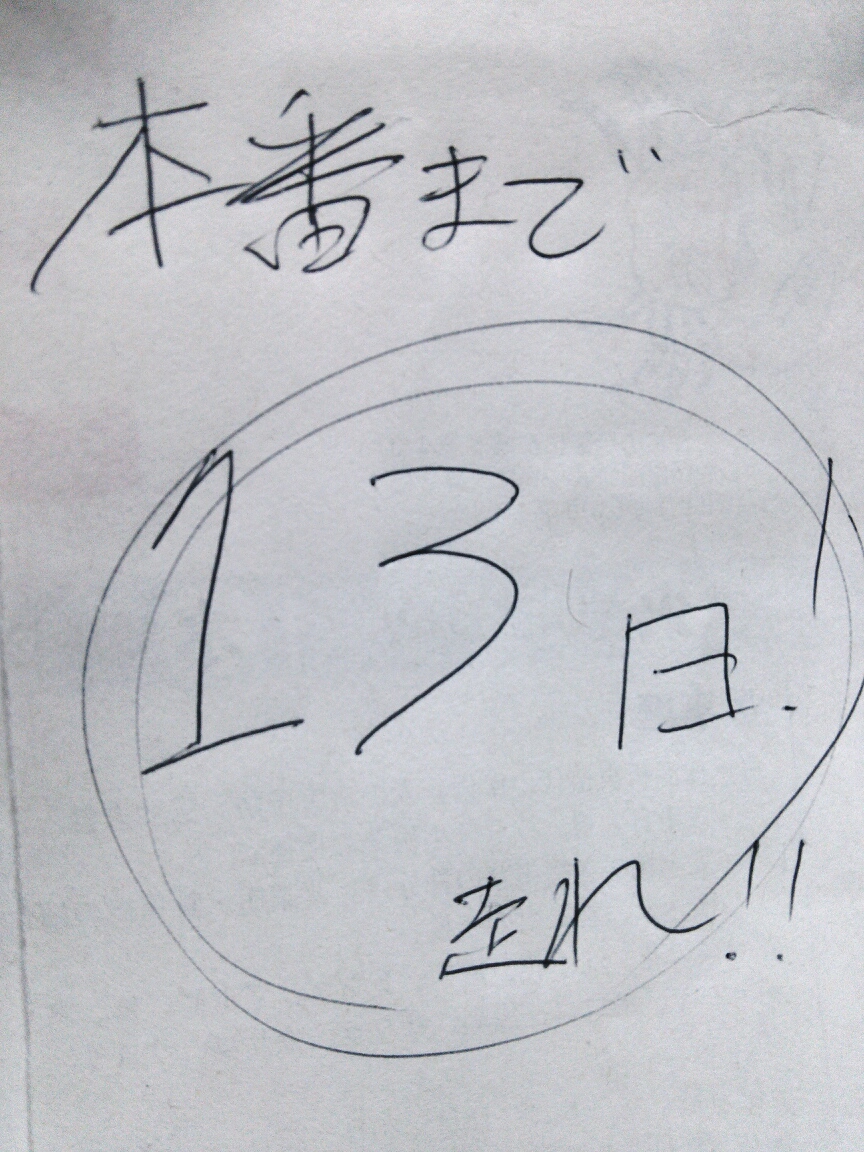 本番まで
13日!
走れ!!